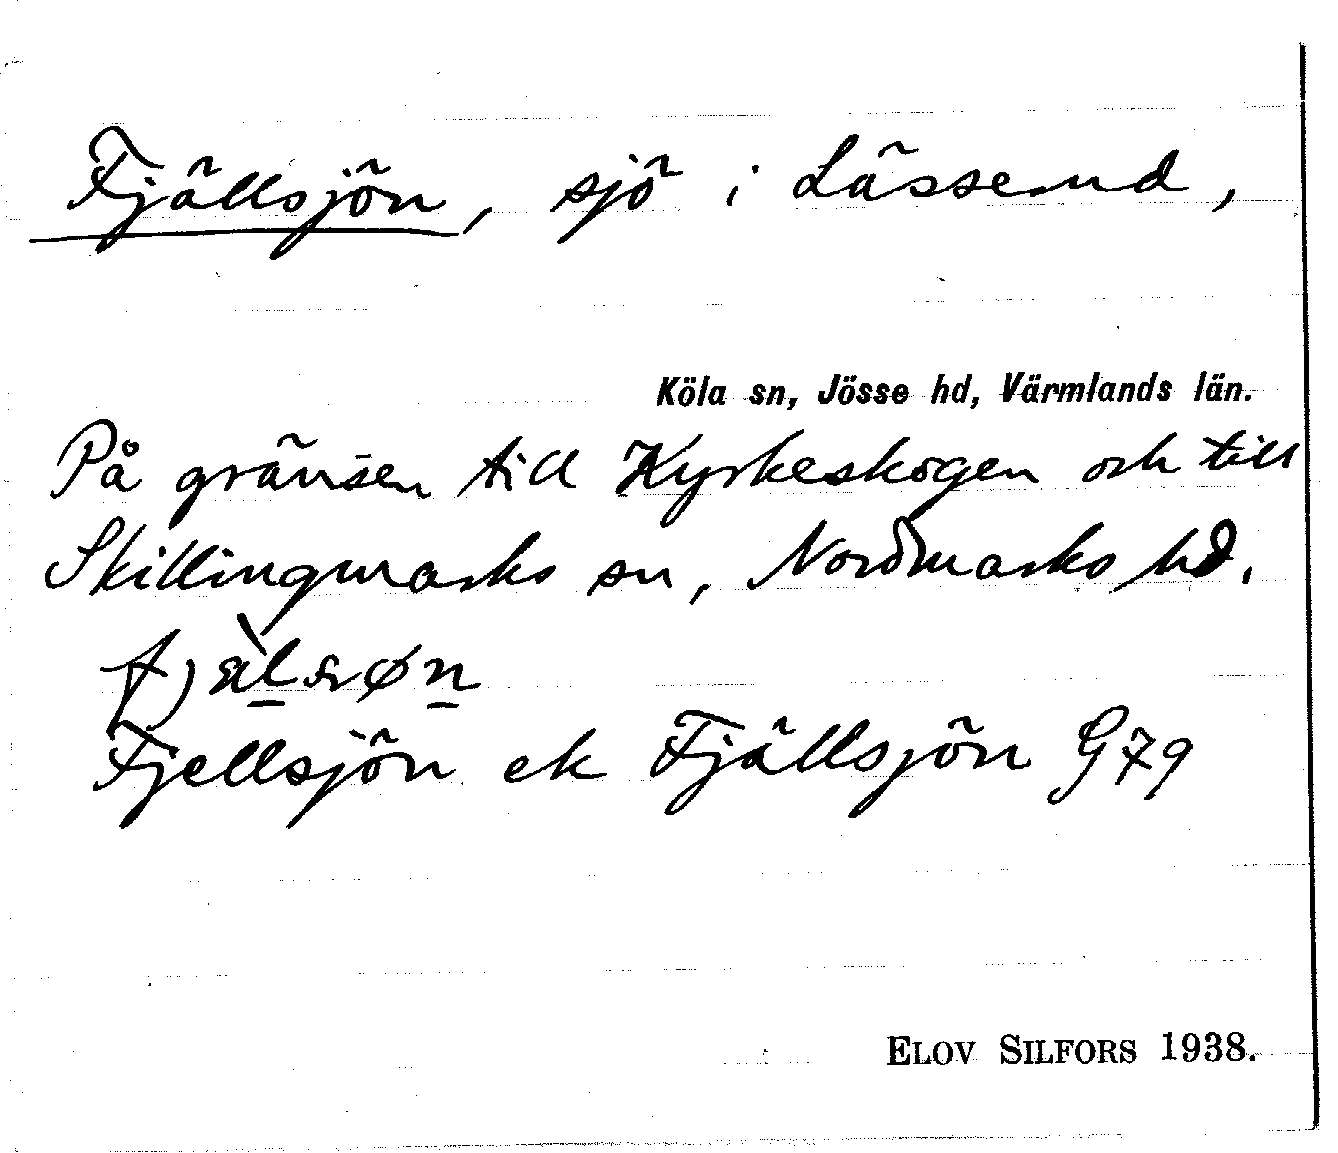 Fjällsjön, sjö i Lässerud,
Köla sn, Jösse hd, Värmlands län.
På gränsen till Kyrkeskogen och till
Skillingmarks sn, Nordmarks hd.
Fjellsjön ek Fjällsjön G79
ELOV SILFORS 1938.